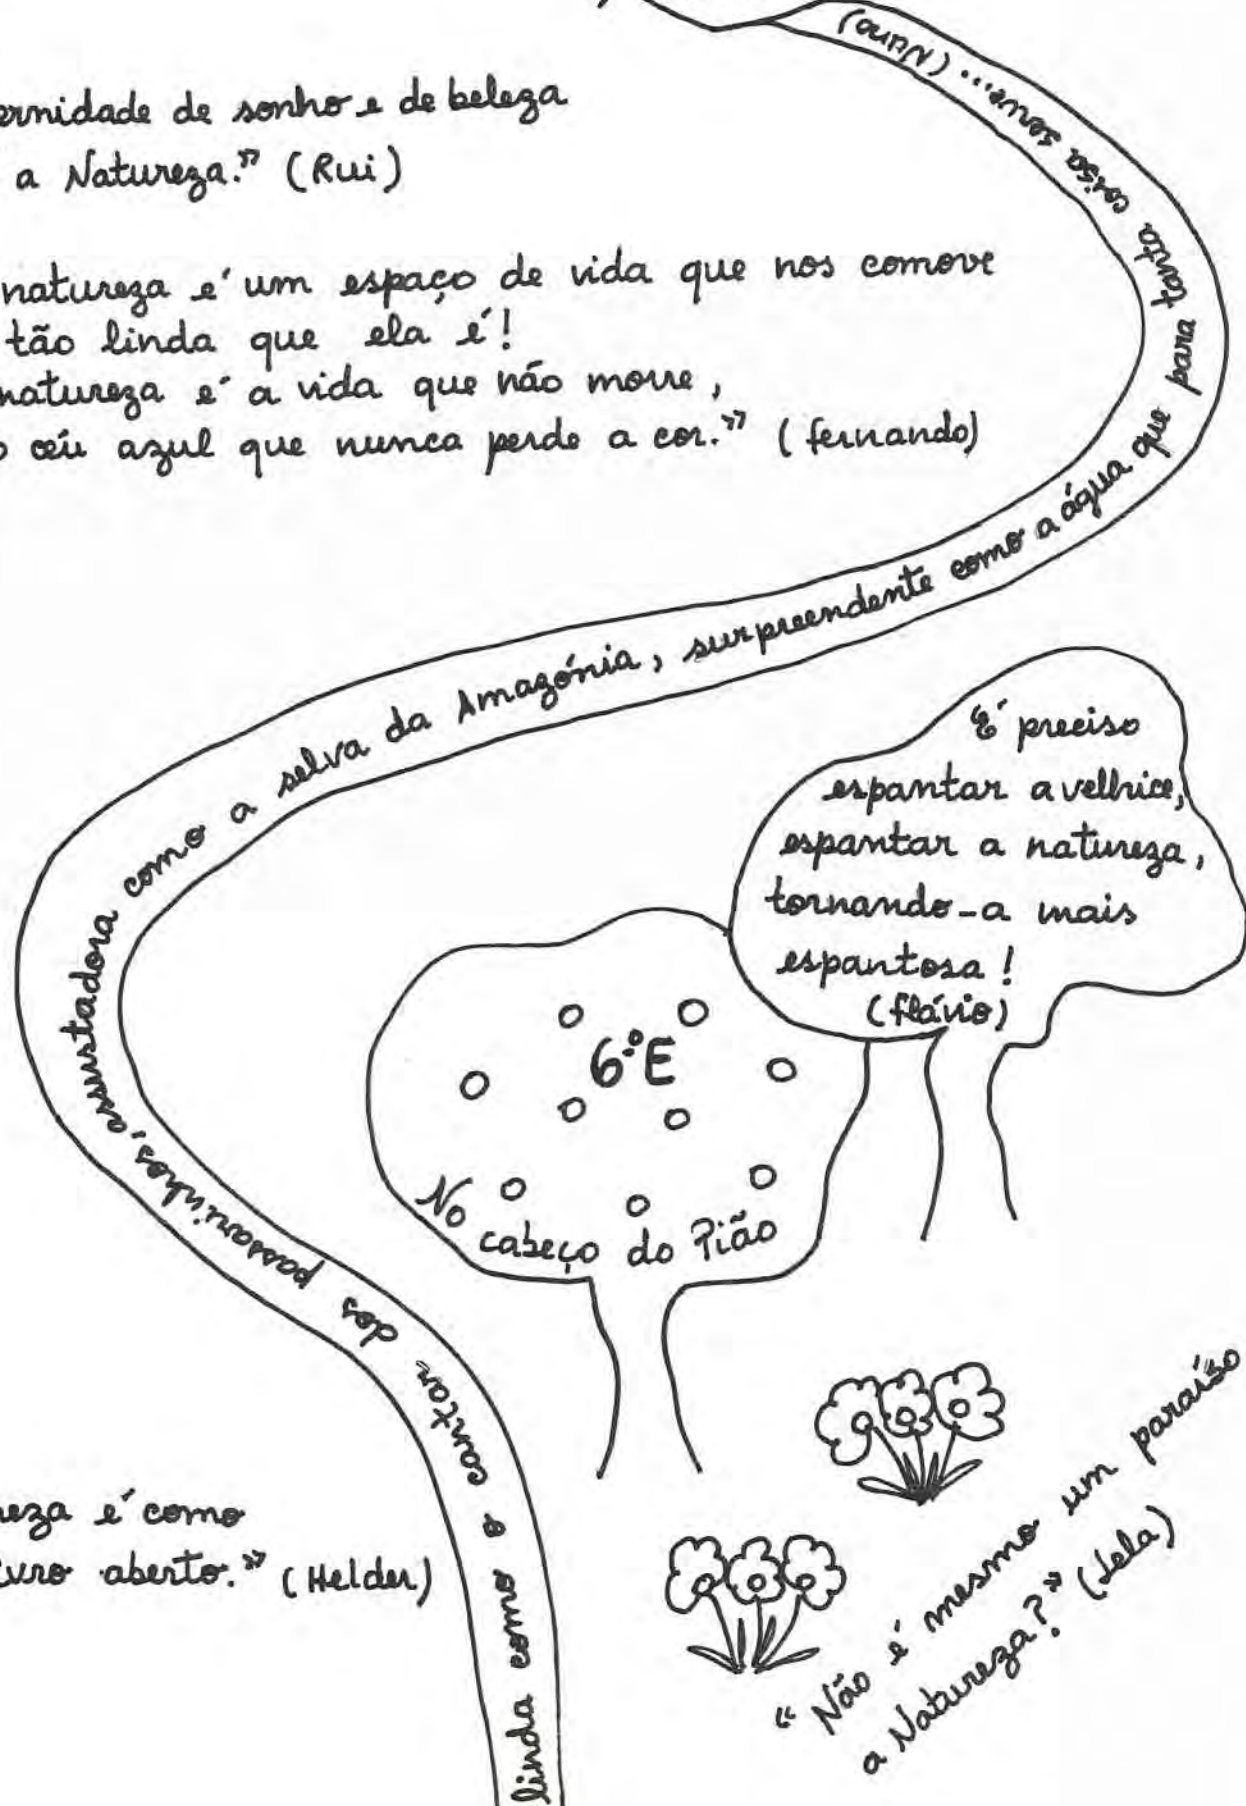 ernidade de sonho e de beleza
a Natureza.” (Rui)
natureza é um espaço de vida que nos comove
tão linda que ela é!
natureza é a vida que não morre,
o céu azul que nunca perde a cor.” (fernando)
linda como o cantar dos passarinhos, assustadora como a selva da Amazónia, surpreendente como a água que para tanta coisa serve... (Nuno)
É preciso
espantar a velhice,
espantar a natureza,
tornando-a mais
espantosa!
(flávio)
6.º E
No cabeço do Pião
reza é como
ivro aberto.” (Helder)
“Não é mesmo um paraíso
a Natureza?” (Lela)